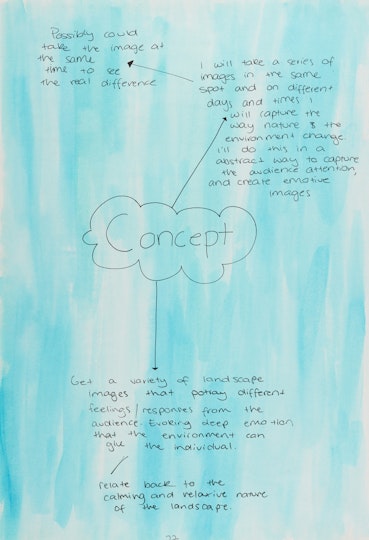 Possibly could
take the image at
the same
time to see
the real difference
I will take a series of
images in the same
spot and on different
days and times I
will capture the
way nature & the
environment change.
I'll do this in a
abstract way to capture
the audience attention,
and create emotive
images
Concept
Get a variety of landscape
images that potray different
feelings/responses from the
audience. Evoking deep emotion
that the environment can
give the individual.
relate back to the
calming and relaxive nature
of the landscape.